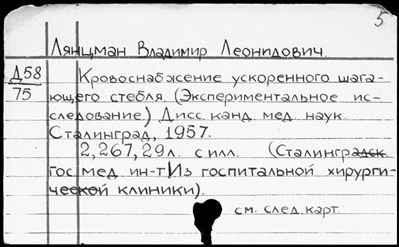 5
Лянцман Владимир Леонидович.
Д58
75
Кровоснабжение ускоренного шага-
ющего стебля. (Экспериментальное ис-
следование.) Дисс. канд. мед. наук.
Сталинград, 1957.
2,267,29л. с илл. (Сталинградск.
Гос. мед. ин-т Из госпитальной хирурги-
ческой клиники).
см. след. карт.